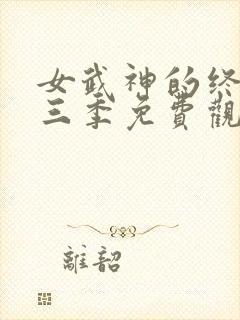 女武神的终
三季免費觀
離韶